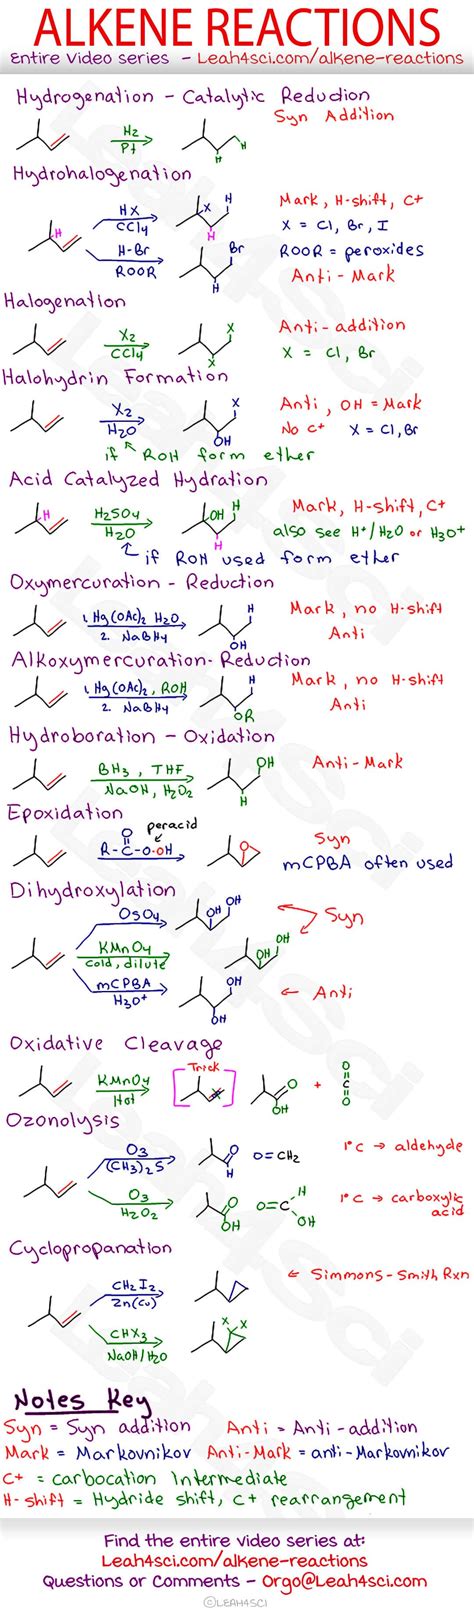 ALKENE REACTIONS
Entire Video series - Leah4sci.com/alkene-reactions
Hydrogenation - Catalytic Reduction
Syn Addition
H2
Pt
H
H
Hydrohalogenation
H
HX
CCl4
X
H
H
Mark, H-shift, C+
X = Cl, Br, I
H-Br
ROOR
Br
H
ROOR = peroxides
Anti-Mark
Halogenation
X2
CCl4
X
X
Anti-addition
X = Cl, Br
Halohydrin Formation
X2
H2O
X
OH
Anti, OH = Mark
No C+ X = Cl, Br
if ROH form ether
Acid Catalyzed Hydration
H
H2SO4
H2O
OH
H
H
Mark, H-shift, C+
also see H+/H2O or H3O+
if ROH used form ether
Oxymercuration - Reduction
1. Hg(OAc)2 H2O
2. NaBH4
H
OH
Mark, no H-shift
Anti
Alkoxymercuration-Reduction
1. Hg(OAc)2, ROH
2. NaBH4
H
OR
Mark, no H-shift
Anti
Hydroboration - Oxidation
BH3, THF
NaOH, H2O2
OH
H
Anti-Mark
Epoxidation
peracid
O
R-C-O-OH
O
Syn
mCPBA often used
Dihydroxylation
OsO4
OH
OH
Syn
KMnO4
cold, dilute
OH
OH
mCPBA
H3O+
OH
OH
Anti
Oxidative Cleavage
KMnO4
Hot
Trick
O
OH
+
O=C=O
Ozonolysis
O3
(CH3)2S
O
H
O=CH2
1°C → aldehyde
O3
H2O2
O
OH
O=C
H
OH
1°C → carboxylic
acid
Cyclopropanation
CH2I2
Zn(Cu)
Simmons-Smith Rxn
CHX3
NaOH/H2O
X X
Notes Key
Syn = Syn addition Anti = Anti-addition
Mark = Markovnikov Anti-Mark = anti-Markovnikov
C+ = carbocation Intermediate
H-shift = Hydride shift, C+ rearrangement
Find the entire video series at:
Leah4sci.com/alkene-reactions
Questions or Comments - Orgo@Leah4sci.com
©LEAH4SCI